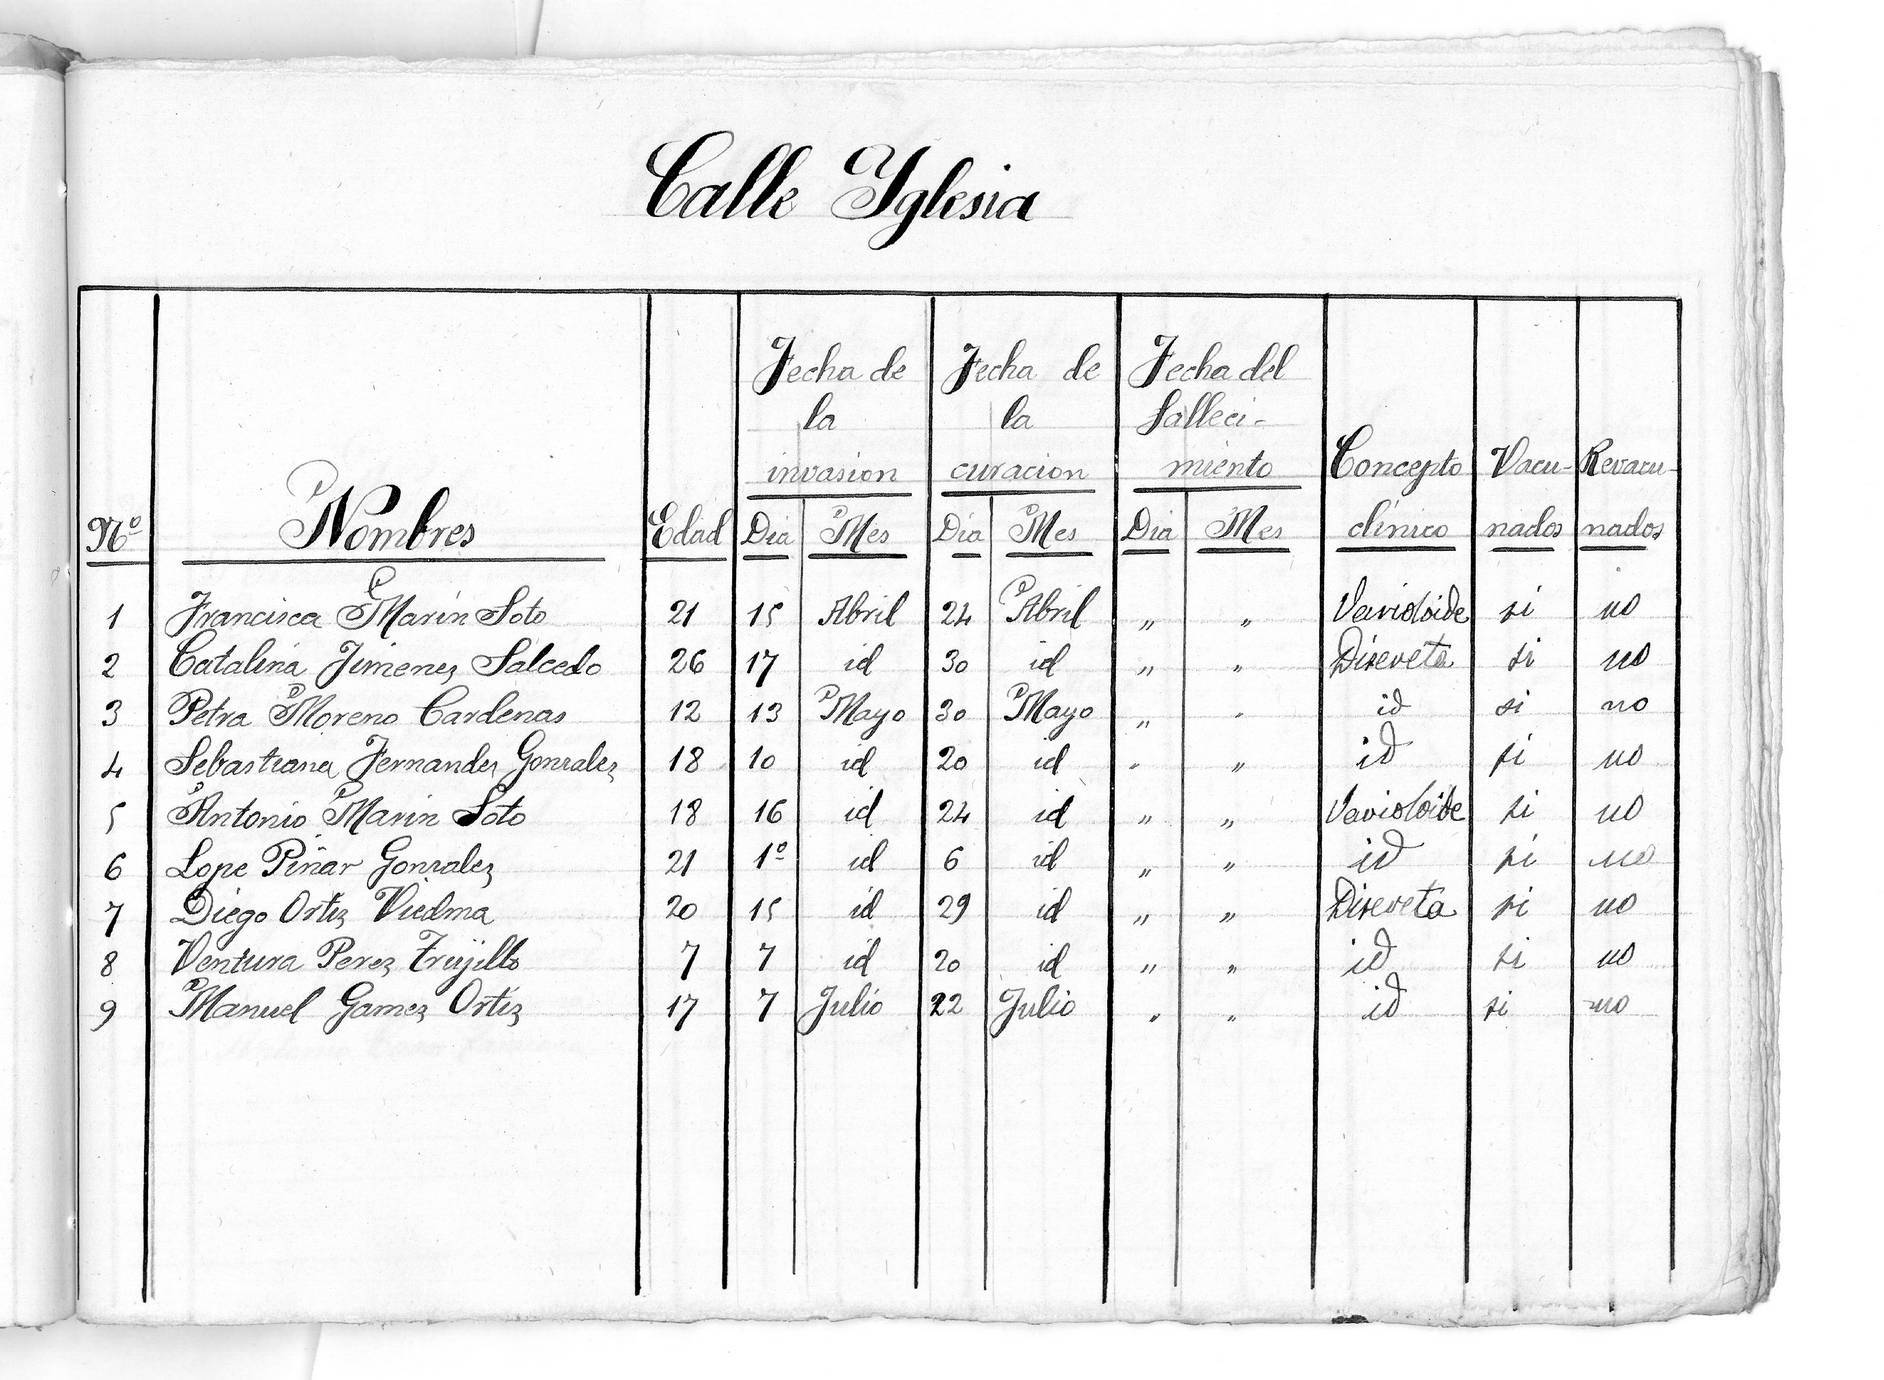 Calle Yglesia
Nº Nombres Edad Fecha de la invasion Fecha de la curacion Fecha del falleci- miento Concepto clínico Vacu- nados Revacu- nados
Dia Mes Dia Mes Dia Mes
1 Francisca Marín Soto 21 15 Abril 24 Abril " " Varioloide si no
2 Catalina Jimenez Salcedo 26 17 id 30 id " " Discreta si no
3 Petra Moreno Cardenas 12 13 Mayo 30 Mayo " " id si no
4 Sebastiana Fernandez Gonzalez 18 10 id 20 id " " id si no
5 Antonio Marin Soto 18 16 id 24 id " " Varioloide si no
6 Lope Piñar Gonzalez 21 1º id 6 id " " id si no
7 Diego Ortiz Viedma 20 15 id 29 id " " Discreta si no
8 Ventura Perez Trujillo 7 7 id 20 id " " id si no
9 Manuel Gamez Ortiz 17 7 Julio 22 Julio " " id si no